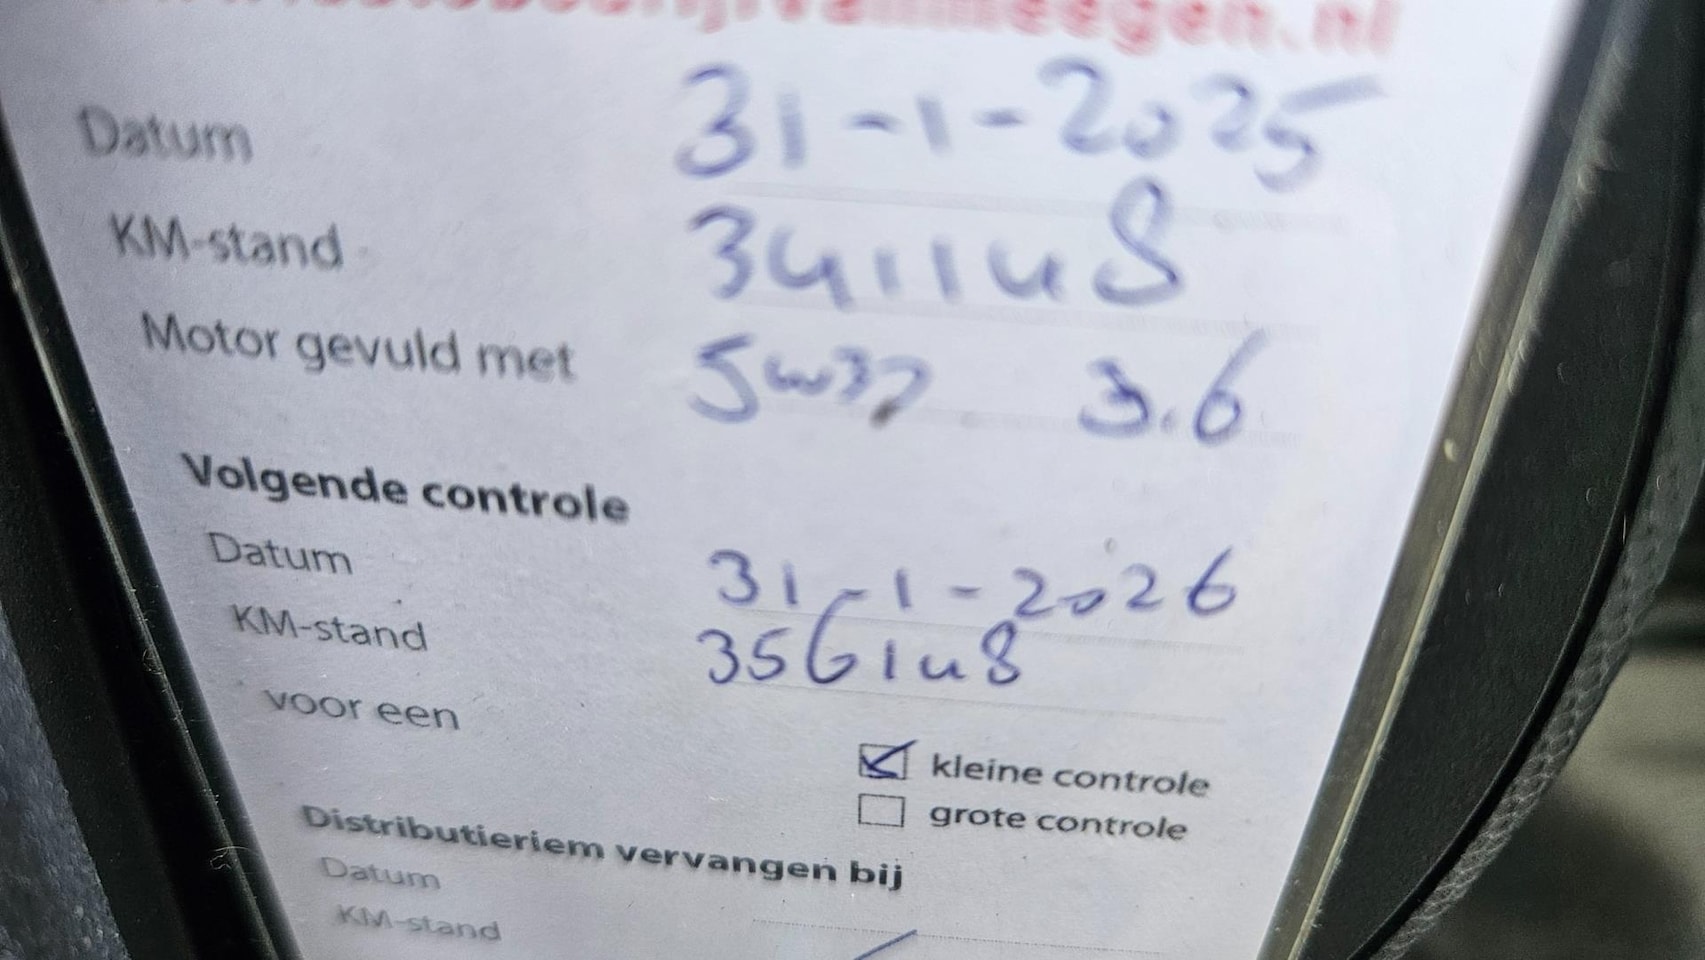 Datum 31-1-2025
KM-stand 341148
Motor gevuld met 5w30 3.6
Volgende controle
Datum 31-1-2026
KM-stand 356148
voor een
kleine controle
grote controle
Distributieriem vervangen bij
Datum
KM-stand